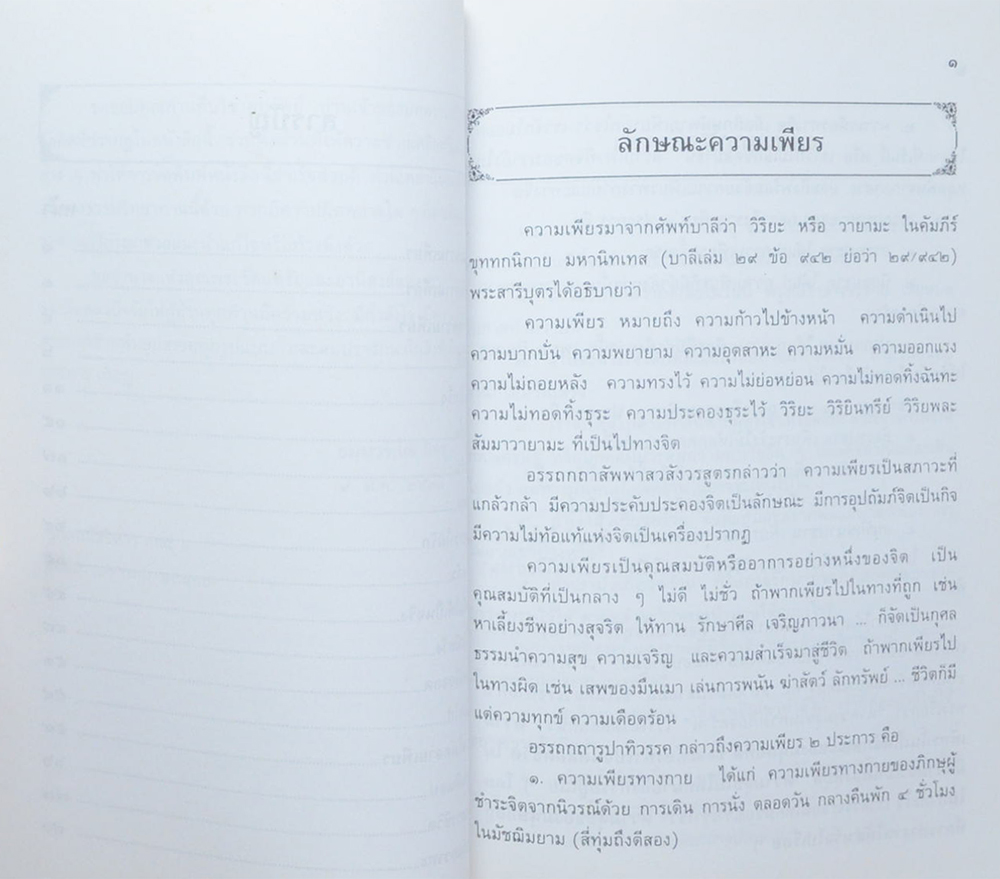 ๑
ลักษณะความเพียร
ความเพียรมาจากศัพท์บาลีว่า วิริยะ หรือ วายามะ ในคัมภีร์
ขุททกนิกาย มหานิทเทส (บาลีเล่ม ๒๙ ข้อ ๙๔๒ ย่อว่า ๒๙/๙๔๒)
พระสารีบุตรได้อธิบายว่า
ความเพียร หมายถึง ความก้าวไปข้างหน้า ความดำเนินไป
ความบากบั่น ความพยายาม ความอุตสาหะ ความหมั่น ความออกแรง
ความไม่ถอยหลัง ความทรงไว้ ความไม่ย่อหย่อน ความไม่ทอดทิ้งฉันทะ
ความไม่ทอดทิ้งธุระ ความประคองธุระไว้ วิริยะ วิริยินทรีย์ วิริยพละ
สัมมาวายามะ ที่เป็นไปทางจิต
อรรถกถาสัพพาสวสังวรสูตรกล่าวว่า ความเพียรเป็นสภาวะที่
แกล้วกล้า มีความประคับประคองจิตเป็นลักษณะ มีการอุปถัมภ์จิตเป็นกิจ
มีความไม่ท้อแท้แห่งจิตเป็นเครื่องปรากฏ
ความเพียรเป็นคุณสมบัติหรืออาการอย่างหนึ่งของจิต เป็น
คุณสมบัติที่เป็นกลาง ๆ ไม่ดี ไม่ชั่ว ถ้าพากเพียรไปในทางที่ถูก เช่น
หาเลี้ยงชีพอย่างสุจริต ให้ทาน รักษาศีล เจริญภาวนา ... ก็จัดเป็นกุศล
ธรรมนำความสุข ความเจริญ และความสำเร็จมาสู่ชีวิต ถ้าพากเพียรไป
ในทางผิด เช่น เสพของมึนเมา เล่นการพนัน ฆ่าสัตว์ ลักทรัพย์ ... ชีวิตก็มี
แต่ความทุกข์ ความเดือดร้อน
อรรถกถารูปาทิวรรค กล่าวถึงความเพียร ๒ ประการ คือ
๑. ความเพียรทางกาย ได้แก่ ความเพียรทางกายของภิกษุผู้
ชำระจิตจากนิวรณ์ด้วย การเดิน การนั่ง ตลอดวัน กลางคืนพัก ๔ ชั่วโมง
ในมัชฌิมยาม (สี่ทุ่มถึงตีสอง)